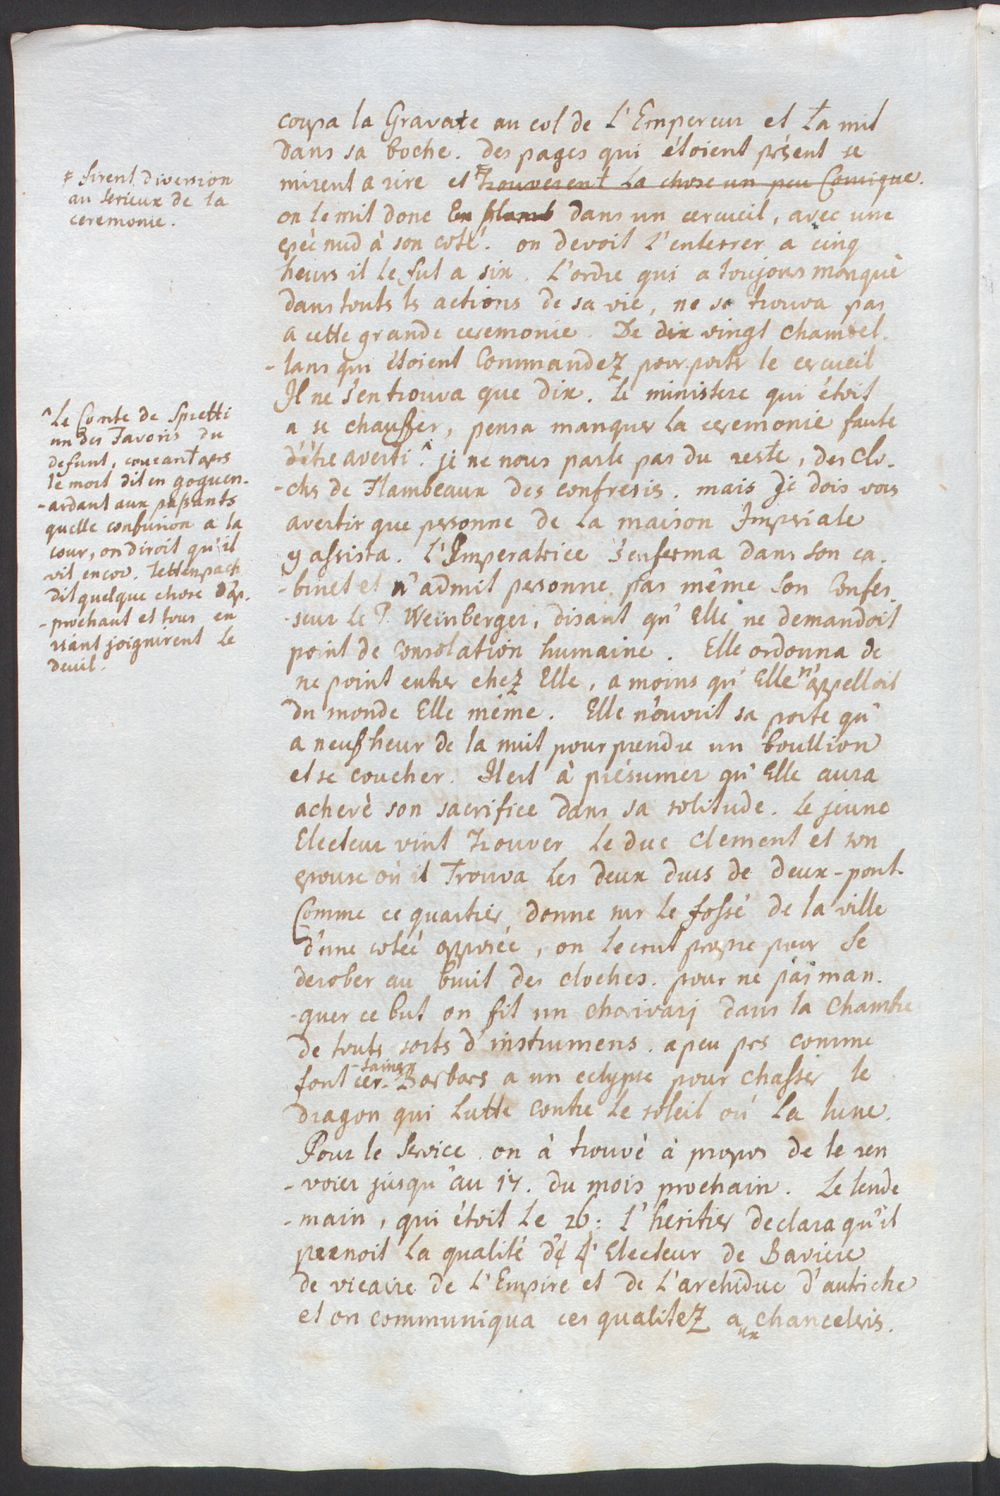 coupa la Gravate au col de L'Empereur et la mit
dans sa boche. des pages qui étoient présent se
mirent a rire et trouverent la chose un peu Comique.
# firent diversion
au serieux de la
ceremonie.
on le mit donc dans un cercueil, avec une
epéé nud à son coté. on devoit l'enterrer a cinq
heurs il le fut a six. L'ordre qui a toujours manqué
dans touts ls actions de sa vie, ne se trouva pas
a cette grande ceremonie. De vingt chambel-
-lans qui étoient Commandez pour porter le cercueil
Il ne s'en trouva que dix. Le ministere qui étoit
a se chauffer, pensa manquer la ceremonie faute
d'être averti.^ je ne vous parle pas du reste, des clo-
^Le Conte de Spretti
un des Favoris du
defunt, courant aprs
le mort dit en goguen-
-ardant aux passants
quelle confusion a la
cour, on diroit qu'il
vit encor. Tettenpach
dit quelque chose d'ap-
-prochant et tous en
riant joignirent le
deuil.
-chs de Flambeaux des confreris. mais je dois vous
avertir que personne de la maison Imperiale
y assista. L'Imperatrice s'enferma dans son ca-
-binet et n'admit personne pas même son Confes-
-seur le P. Weinberger, disant qu'Elle ne demandoit
point de consolation humaine. Elle ordonna de
ne point entrer chez Elle, a moins qu'Elle n'appelloit
du monde Elle même. Elle n'ouvrit sa porte qu'
a neuf heur de la nuit pour prendre un boullion
et se coucher. Il est à présumer qu'Elle aura
achevè son sacrifice dans sa solitude. Le jeune
Electeur vint trouver Le duc Clement et son
epouse où il Trouva Les deux ducs de deux-pont.
Comme ce quartier donne sur le fossé de la ville
d'une cotéé opposée, on le crut propre pour se
derober au bruit des cloches. pour ne pas man-
-quer ce but on fit un charivarj dans la chambre
de touts sorts d'instrumens. a peu prs comme
font cer-tains Barbars a un eclypse pour chasser le
dragon qui lutte contre le soleil où la lune.
Pour le service on à trouvè à propos de le ren
-voier jusqu'au 17. du mois prochain. Le lende
-main, qui étoit le 26: l'heritier declara qu'il
prenoit la qualité d' Electeur de Baviere
de vicaire de L'Empire et de L'archiduc d'autriche
et on communiqua ces qualitez aux chancelris.